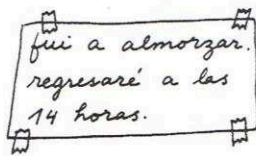 fui a almorzar.
regresaré a las
14 horas.